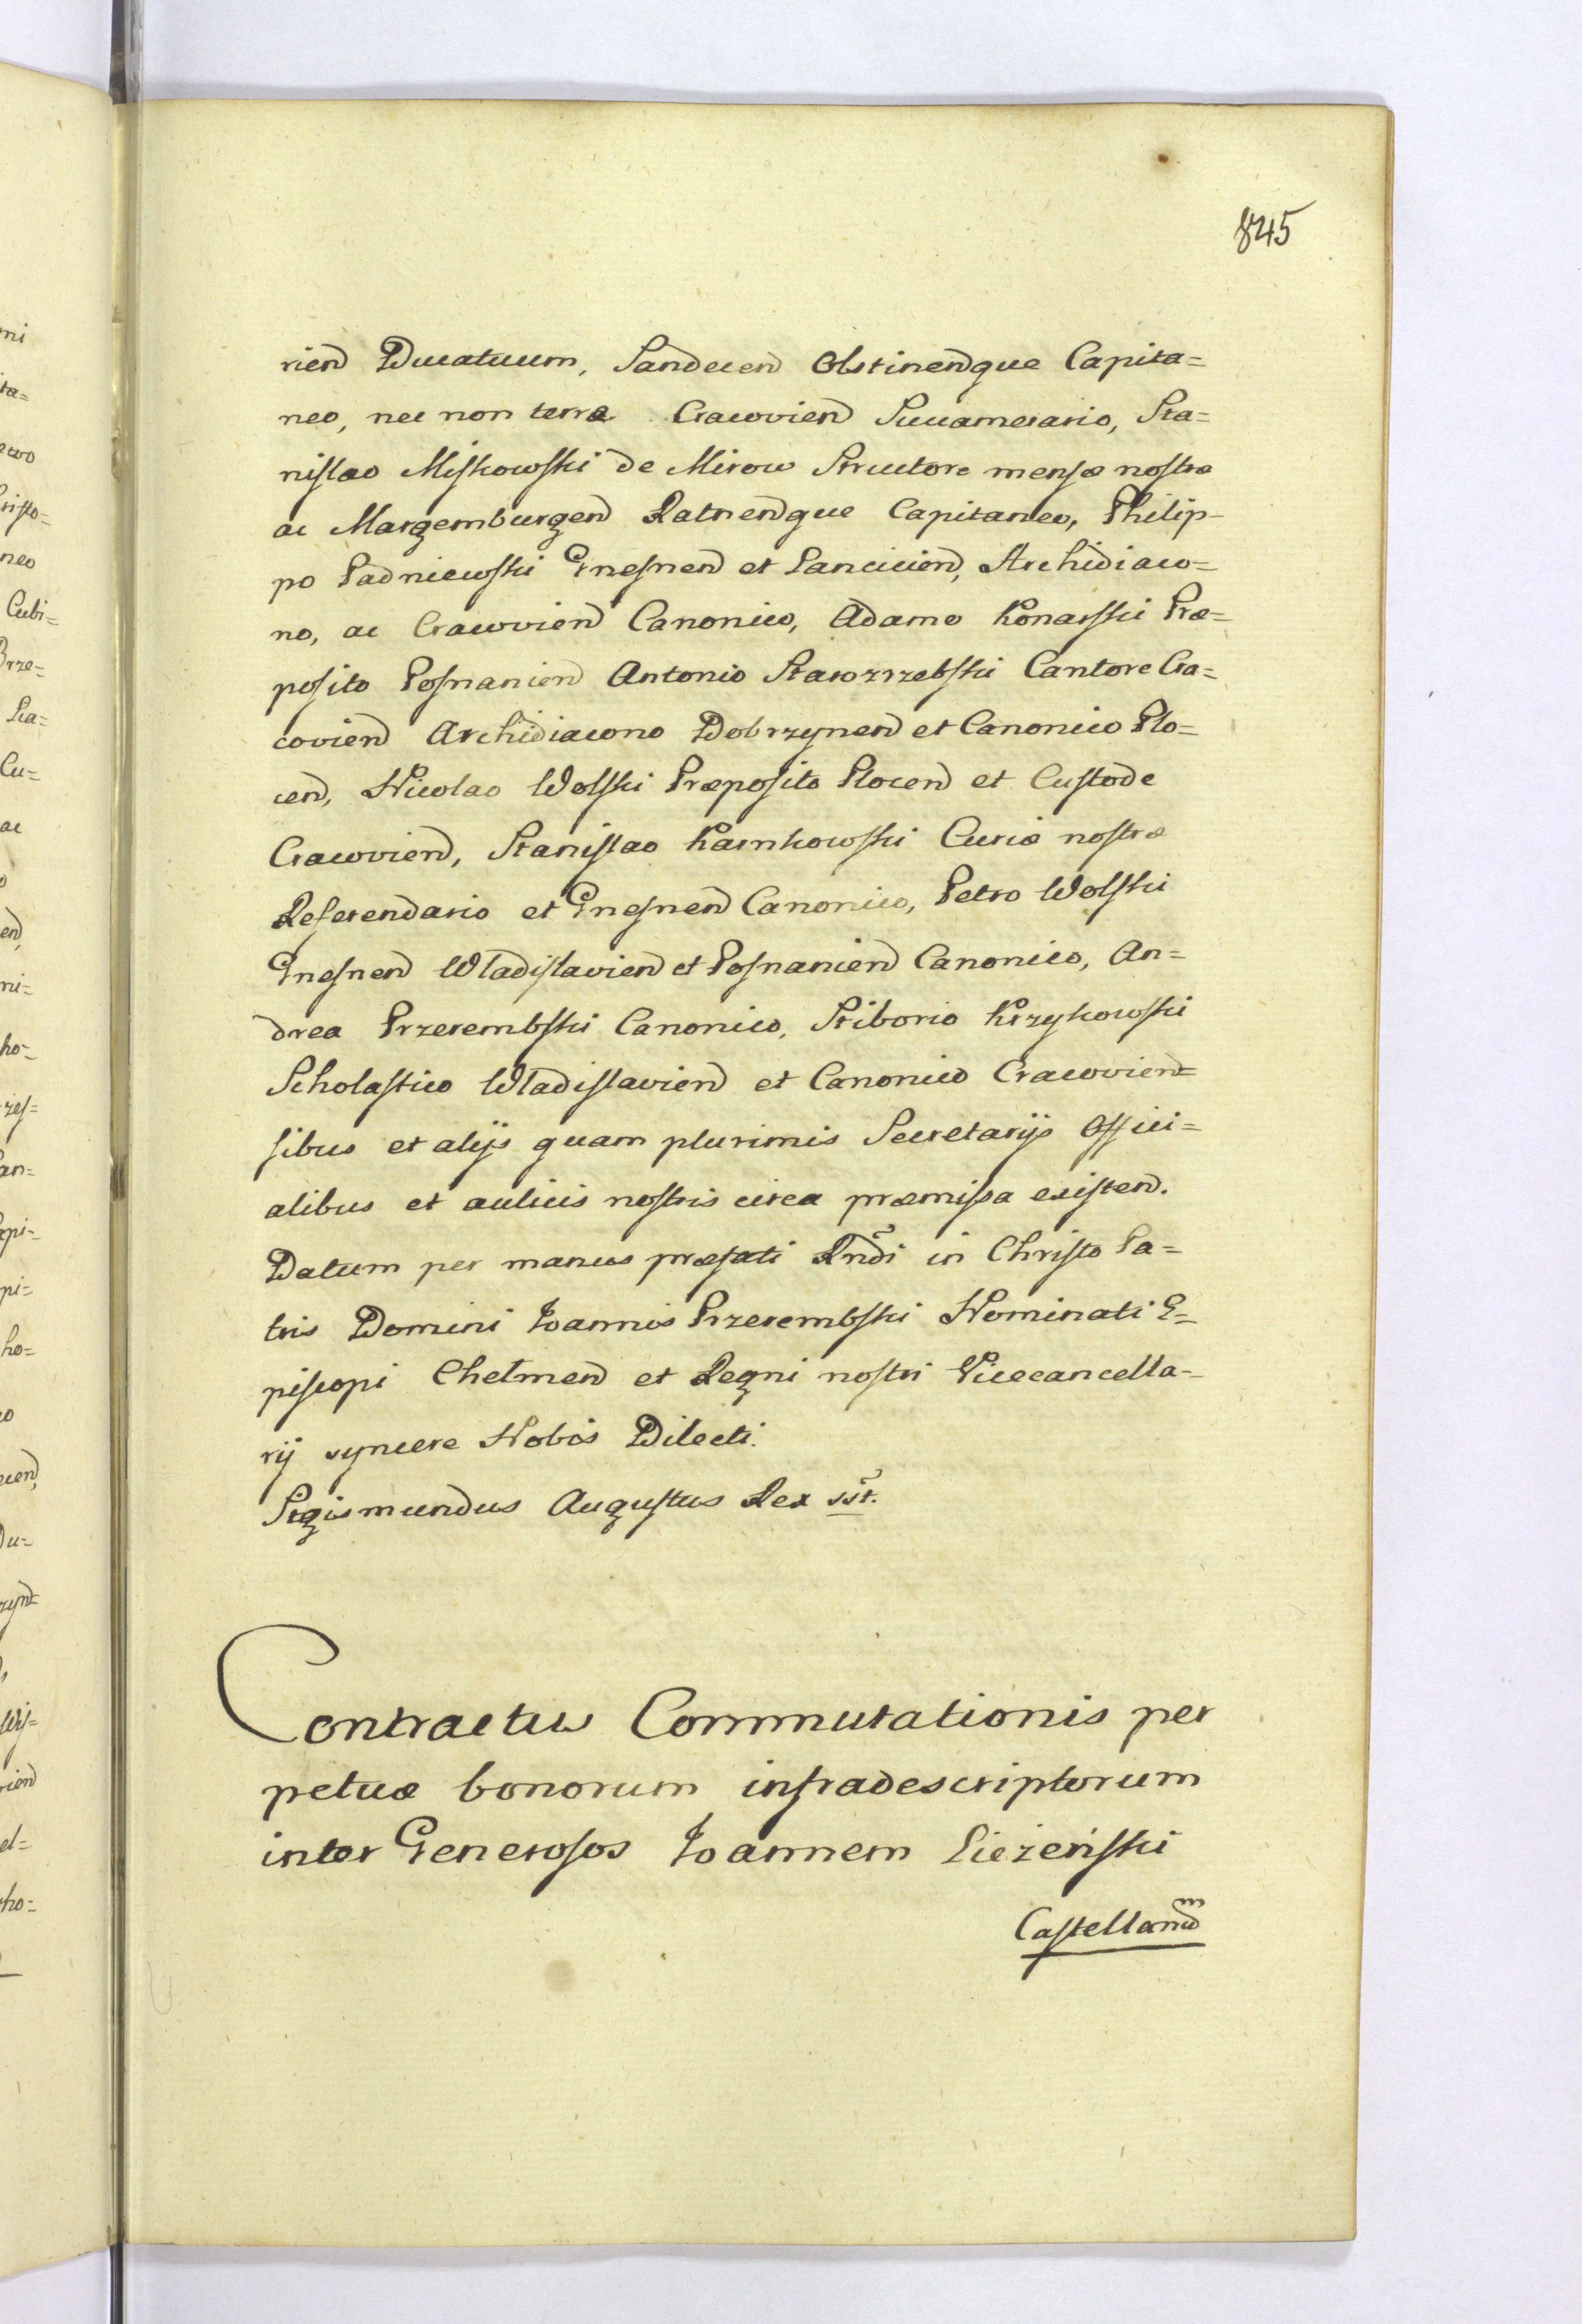 845
rien Ducatuum, Sandecen Olstinenque Capita=
neo, nec non terræ Cracovien Succamerario, Sta=
nislao Miskowski de Mirow Structore mensæ nostræ
ac Margemburgen Ratnenque Capitaneo, Philip-
po Padniewski Gnesnen et Lancicien, Archidiaco=
no, ac Cracovien Canonico, Adamo Konarski Præ=
posito Posnanien Antonio Starozrzebski Cantore Cra=
covien Archidiacono Dobrzynen et Canonico Plo=
cen, Nicolao Wolski Præposito Plocen et Custode
Cracovien, Stanislao Karnkowski Curiæ nostræ
Referendario et Gnesnen Canonico, Petro Wolski
Gnesnen Wladislavien et Posnanien Canonico, An=
drea Przerembski Canonico, Stiborio Krzykowski
Scholastico Wladislavien et Canonico Cracovien=
sibus et alijs quam plurimis Secretarijs Offici=
alibus et aulicis nostris circa præmissa existen.
Datum per manus præfati Rndi in Christo Pa=
tris Domini Joannis Przerembski Nominati E=
piscopi Chelmen et Regni nostri Vicecancella=
rij syncere Nobis Dilecti.
Sigismundus Augustus Rex sst.
Contractus Commutationis per
petuæ bonorum infradescriptorum
inter Generosos Joannem Lieżeński
Castellanum